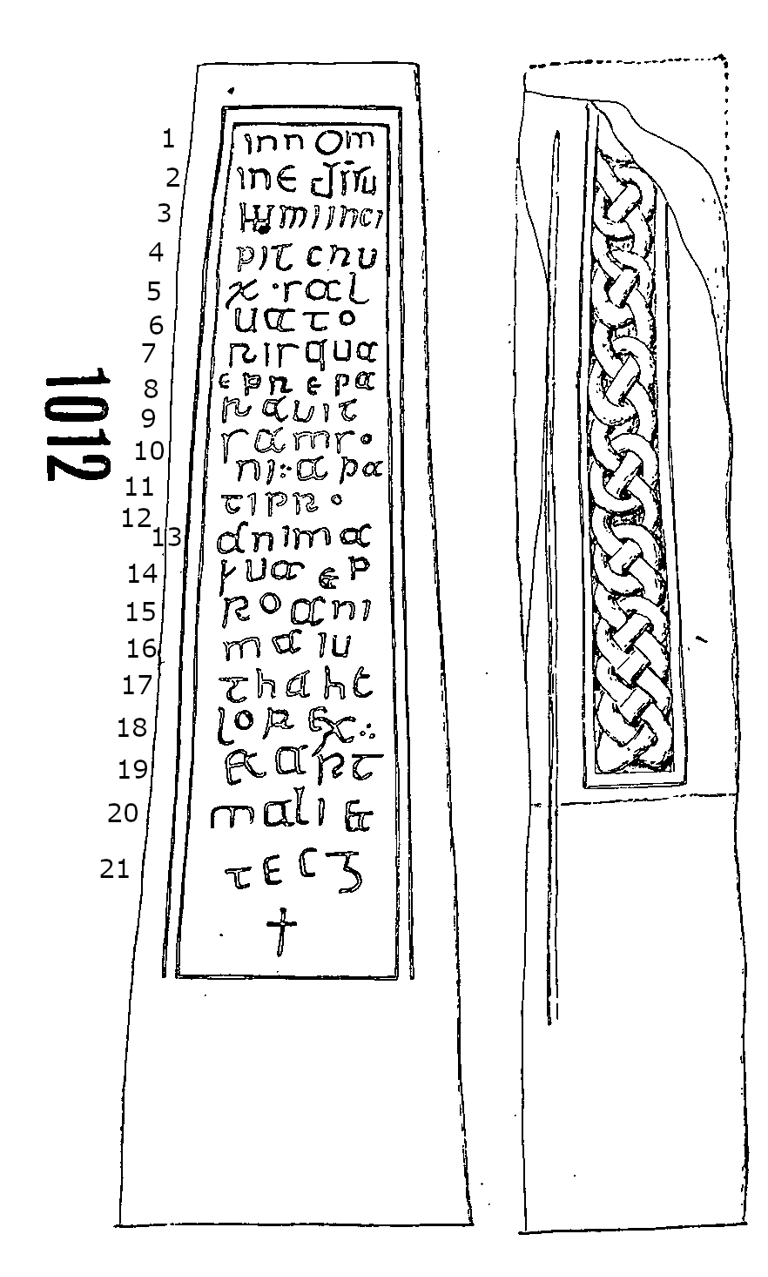 1012
1 inn om
2 ine di su
3 mmi inci
4 pit cru
5 x · sal
6 uato
7 ris qua
8 e prepa
9 rauit
10 samso
11 ni : apa
12 ti pro
13 anima
14 sua et p
15 ro ani
16 ma iu
17 thahe
18 lo rex :
19 et art
20 mali et
21
†